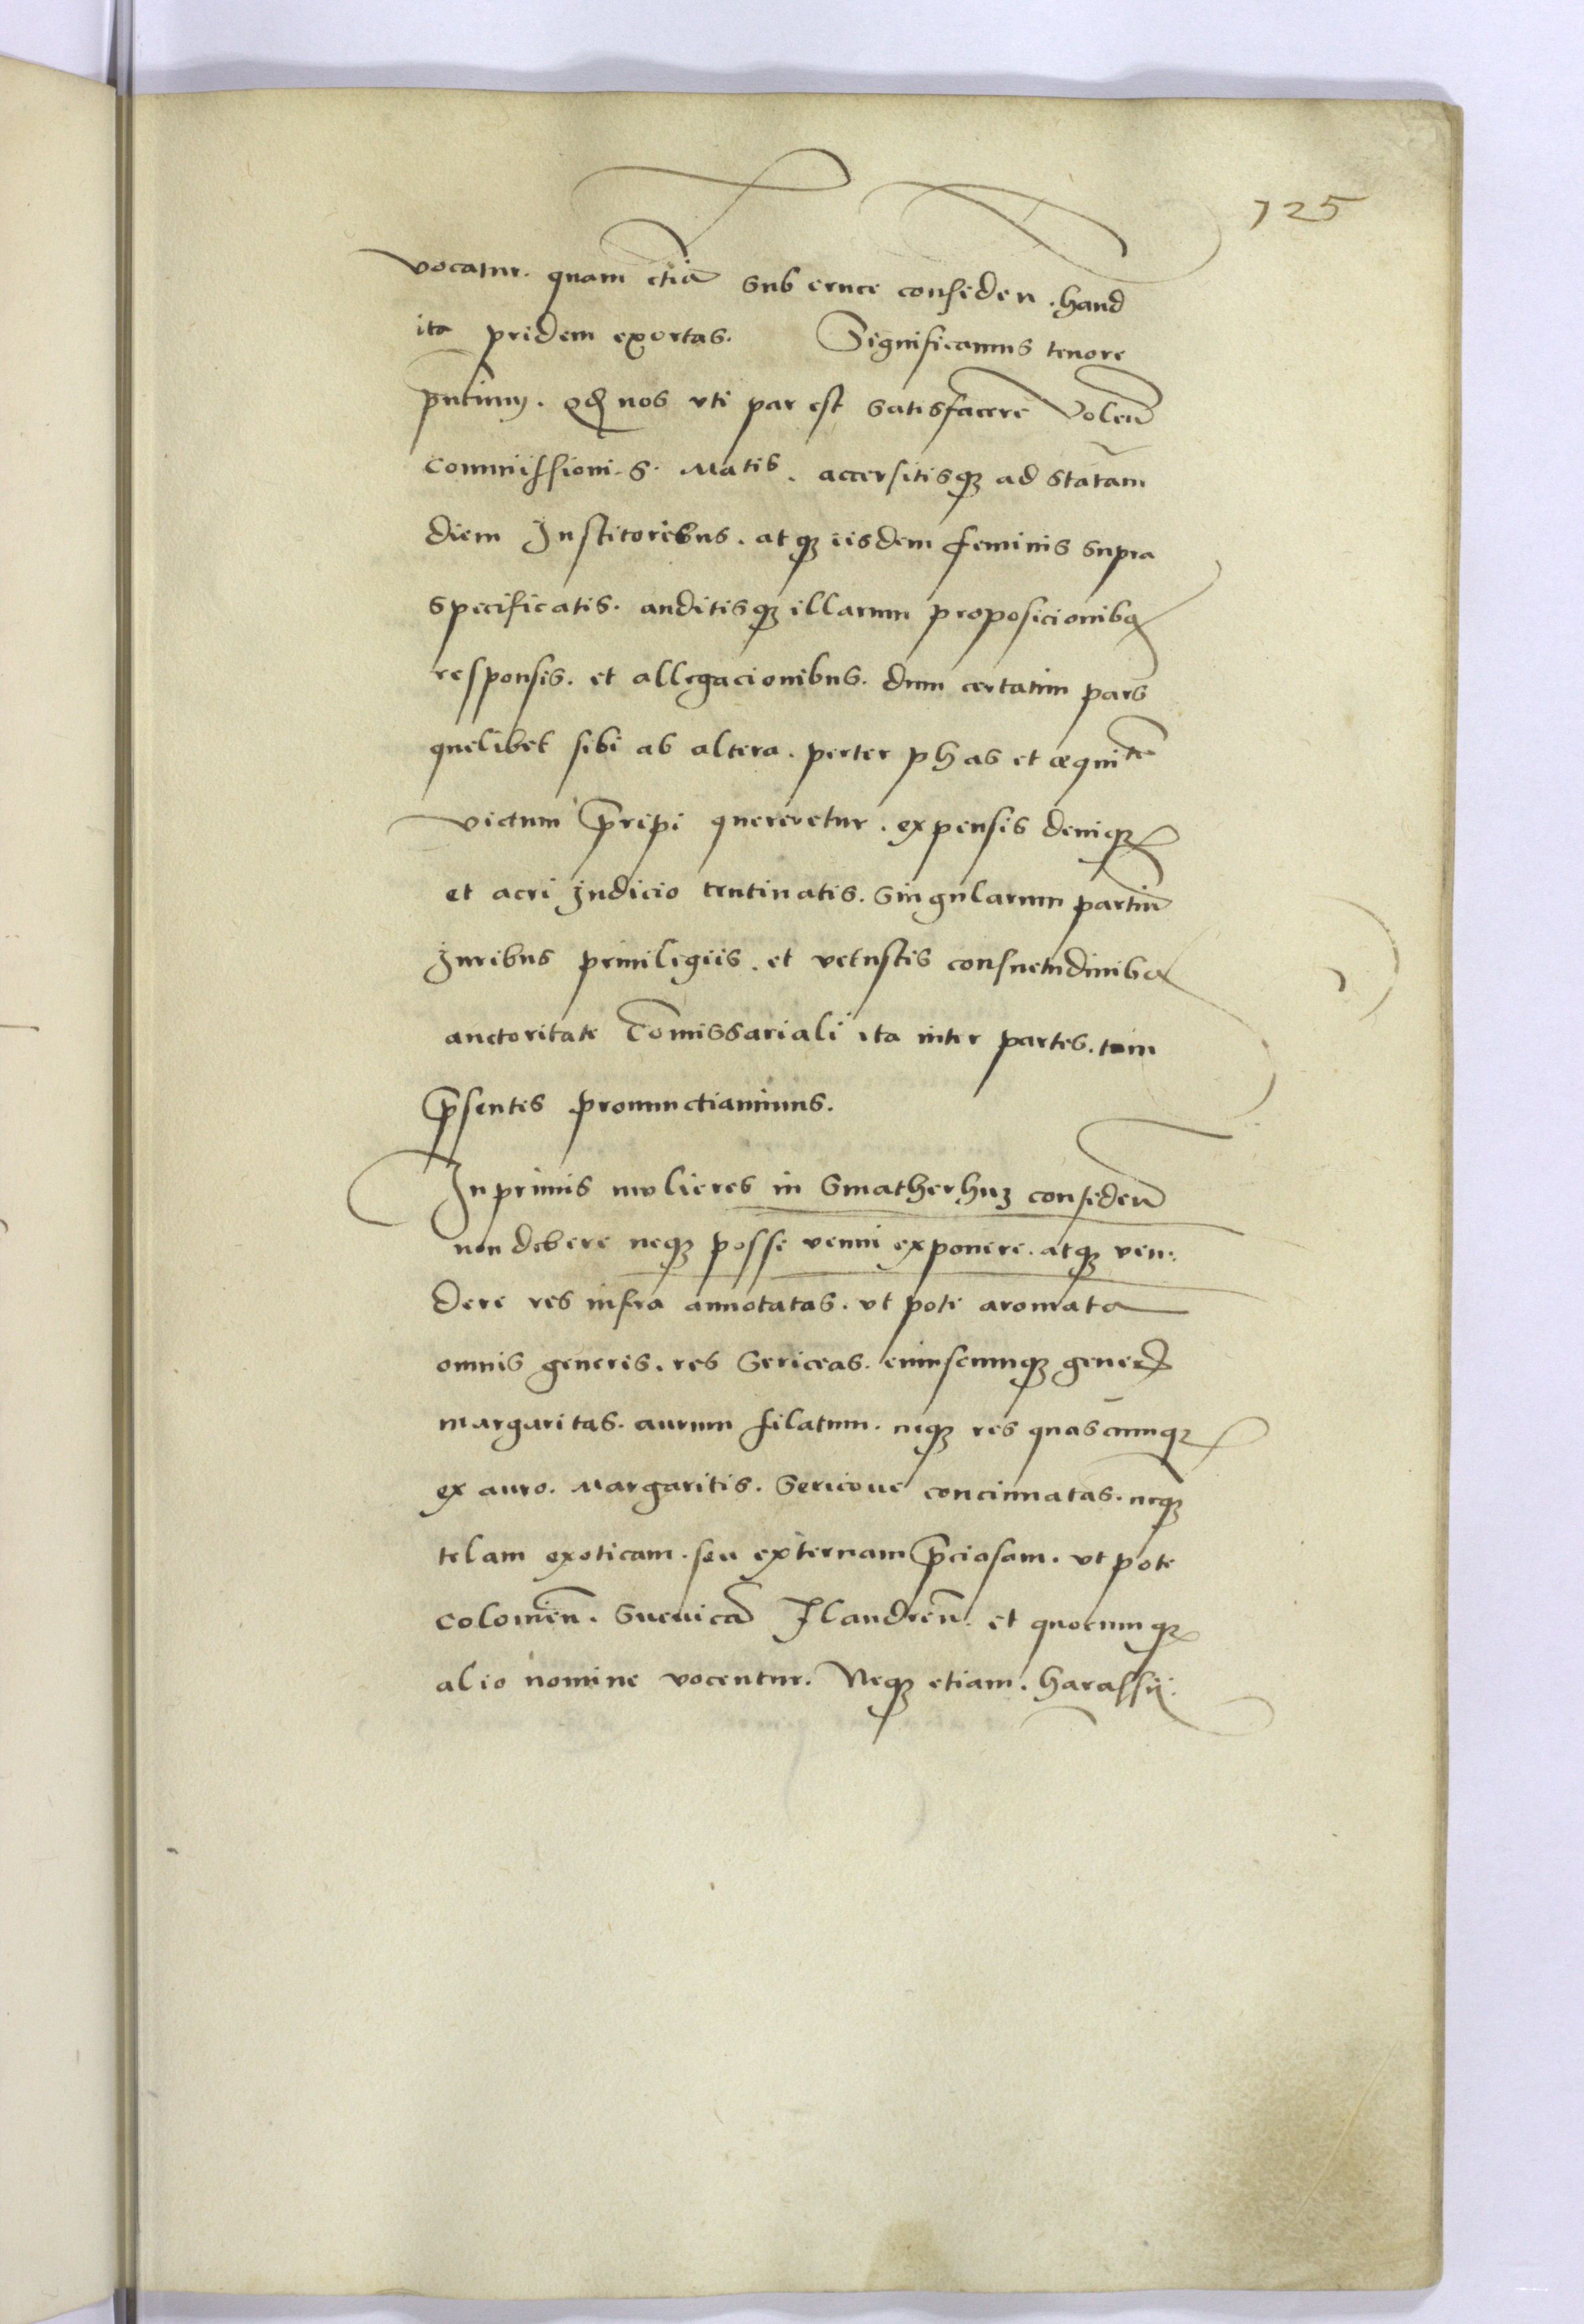 125
vocatur. quam etiā sub cruce conseden. haud
ita pridem exortas. Significamus tenore
pn̄tium. qđ nos vti par est satisfacere Volen̄
commissioni. S. Matis. accersitisqꝫ ad statam
diem Institoribus. atqꝫ iisdem feminis supra
specificatis. auditisqꝫ illarum proposicionibꝫ
responsis. et allegacionibus. dum certatim pars
quelibet sibi ab altera. preter phas et æquitē
victum p̄ripi quereretur. expensis deniqꝫ
et acri Iudicio trutinatis. singularum partiū
Iuribus priuilegiis. et vetustis consuetudinibꝫ
auctoritate Com̄issariali ita inter partes. tum
p̄sentes pronunctiauimus.
Inprimis mulieres in Smatherhuz conseden̄
non debere neqꝫ posse venui exponere. atqꝫ ven:
dere res infra annotatas. vt pote aromata
omnis generis. res sericeas. cuiuscunqꝫ generis
margaritas. aurum filatum. neqꝫ res quascūmqꝫ
ex auro. Margaritis. Sericoue concinnatas. neqꝫ
telam exoticam. seu externam p̄ciosam. vt pote
colonien̄. Sueuicā Flandren̄. et quocumqꝫ
alio nomine vocentur. Neqꝫ etiam. harassij.